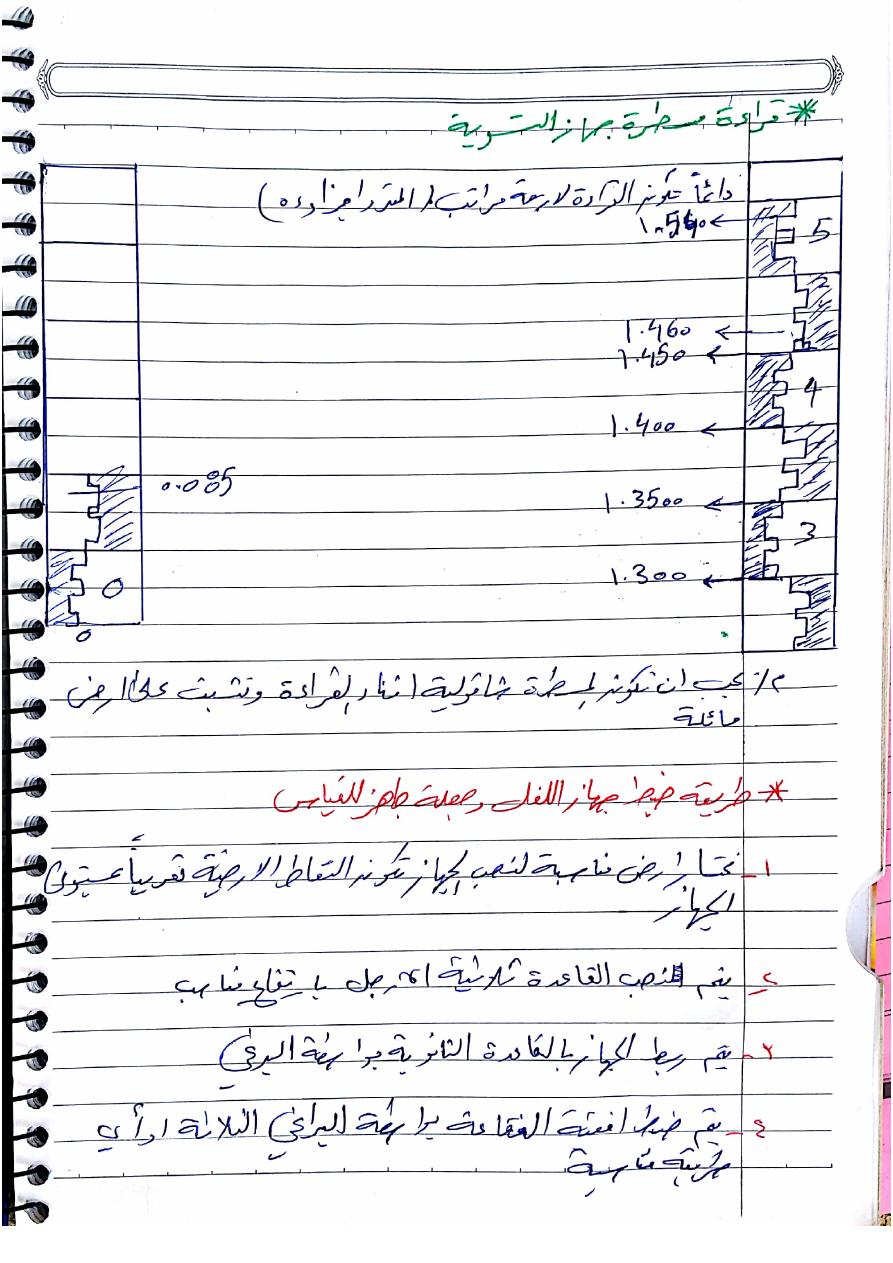 * قراءة مسطرة جهاز التسوية
دائماً تكون القراءة لاربعة مراتب (المتر واجزاءه)
5
1.460
1.450
4
1.400
0.085
1.3500
3
1.300
0
0
م/ يجب ان تكون المسطرة شاقولية اثناء القراءة وتثبت على ارض
مائلة
* طريقة ضبط جهاز اللفل وجعله جاهز للقياس
١- نختار ارض مناسبة لنصب الجهاز تكون النقاط الارضية تقريباً بمستوى
الجهاز
٢- يتم نصب القاعدة ثلاثية الارجل بارتفاع مناسب
٣- يتم ربط الجهاز بالقاعدة الثانوية بواسطة البرغي
٤- يتم ضبط افقية الفقاعة بواسطة البراغي الثلاثة او أي
طريقة مناسبة